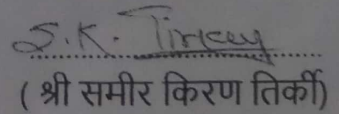 S.K. Tirkey
( श्री समीर किरण तिर्की)